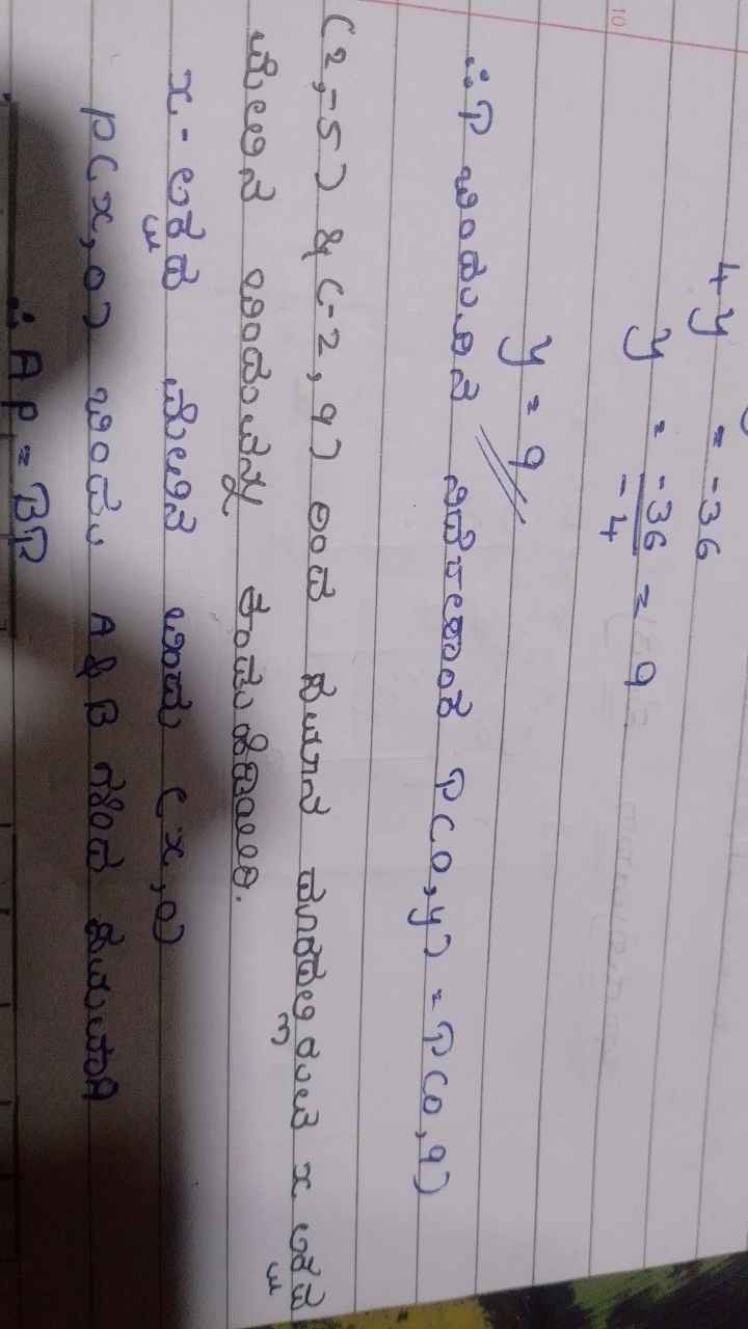 4y = -36
y = -36/-4 = 9
y = 9
∴ P ಬಿಂದುವಿನ ನಿರ್ದೇಶಾಂಕ P(0,y) = P(0,9)
(2,-5) & (-2,9) ಇಂದ ಸಮಾನ ದೂರದಲ್ಲಿರುವ x ಅಕ್ಷದ
ಮೇಲಿನ ಬಿಂದುವನ್ನು ಕಂಡುಹಿಡಿಯಿರಿ.
x - ಅಕ್ಷದ ಮೇಲಿನ ಬಿಂದು (x,0)
P(x,0) ಬಿಂದು A & B ಗಳಿಂದ
∴ AP = BP
10